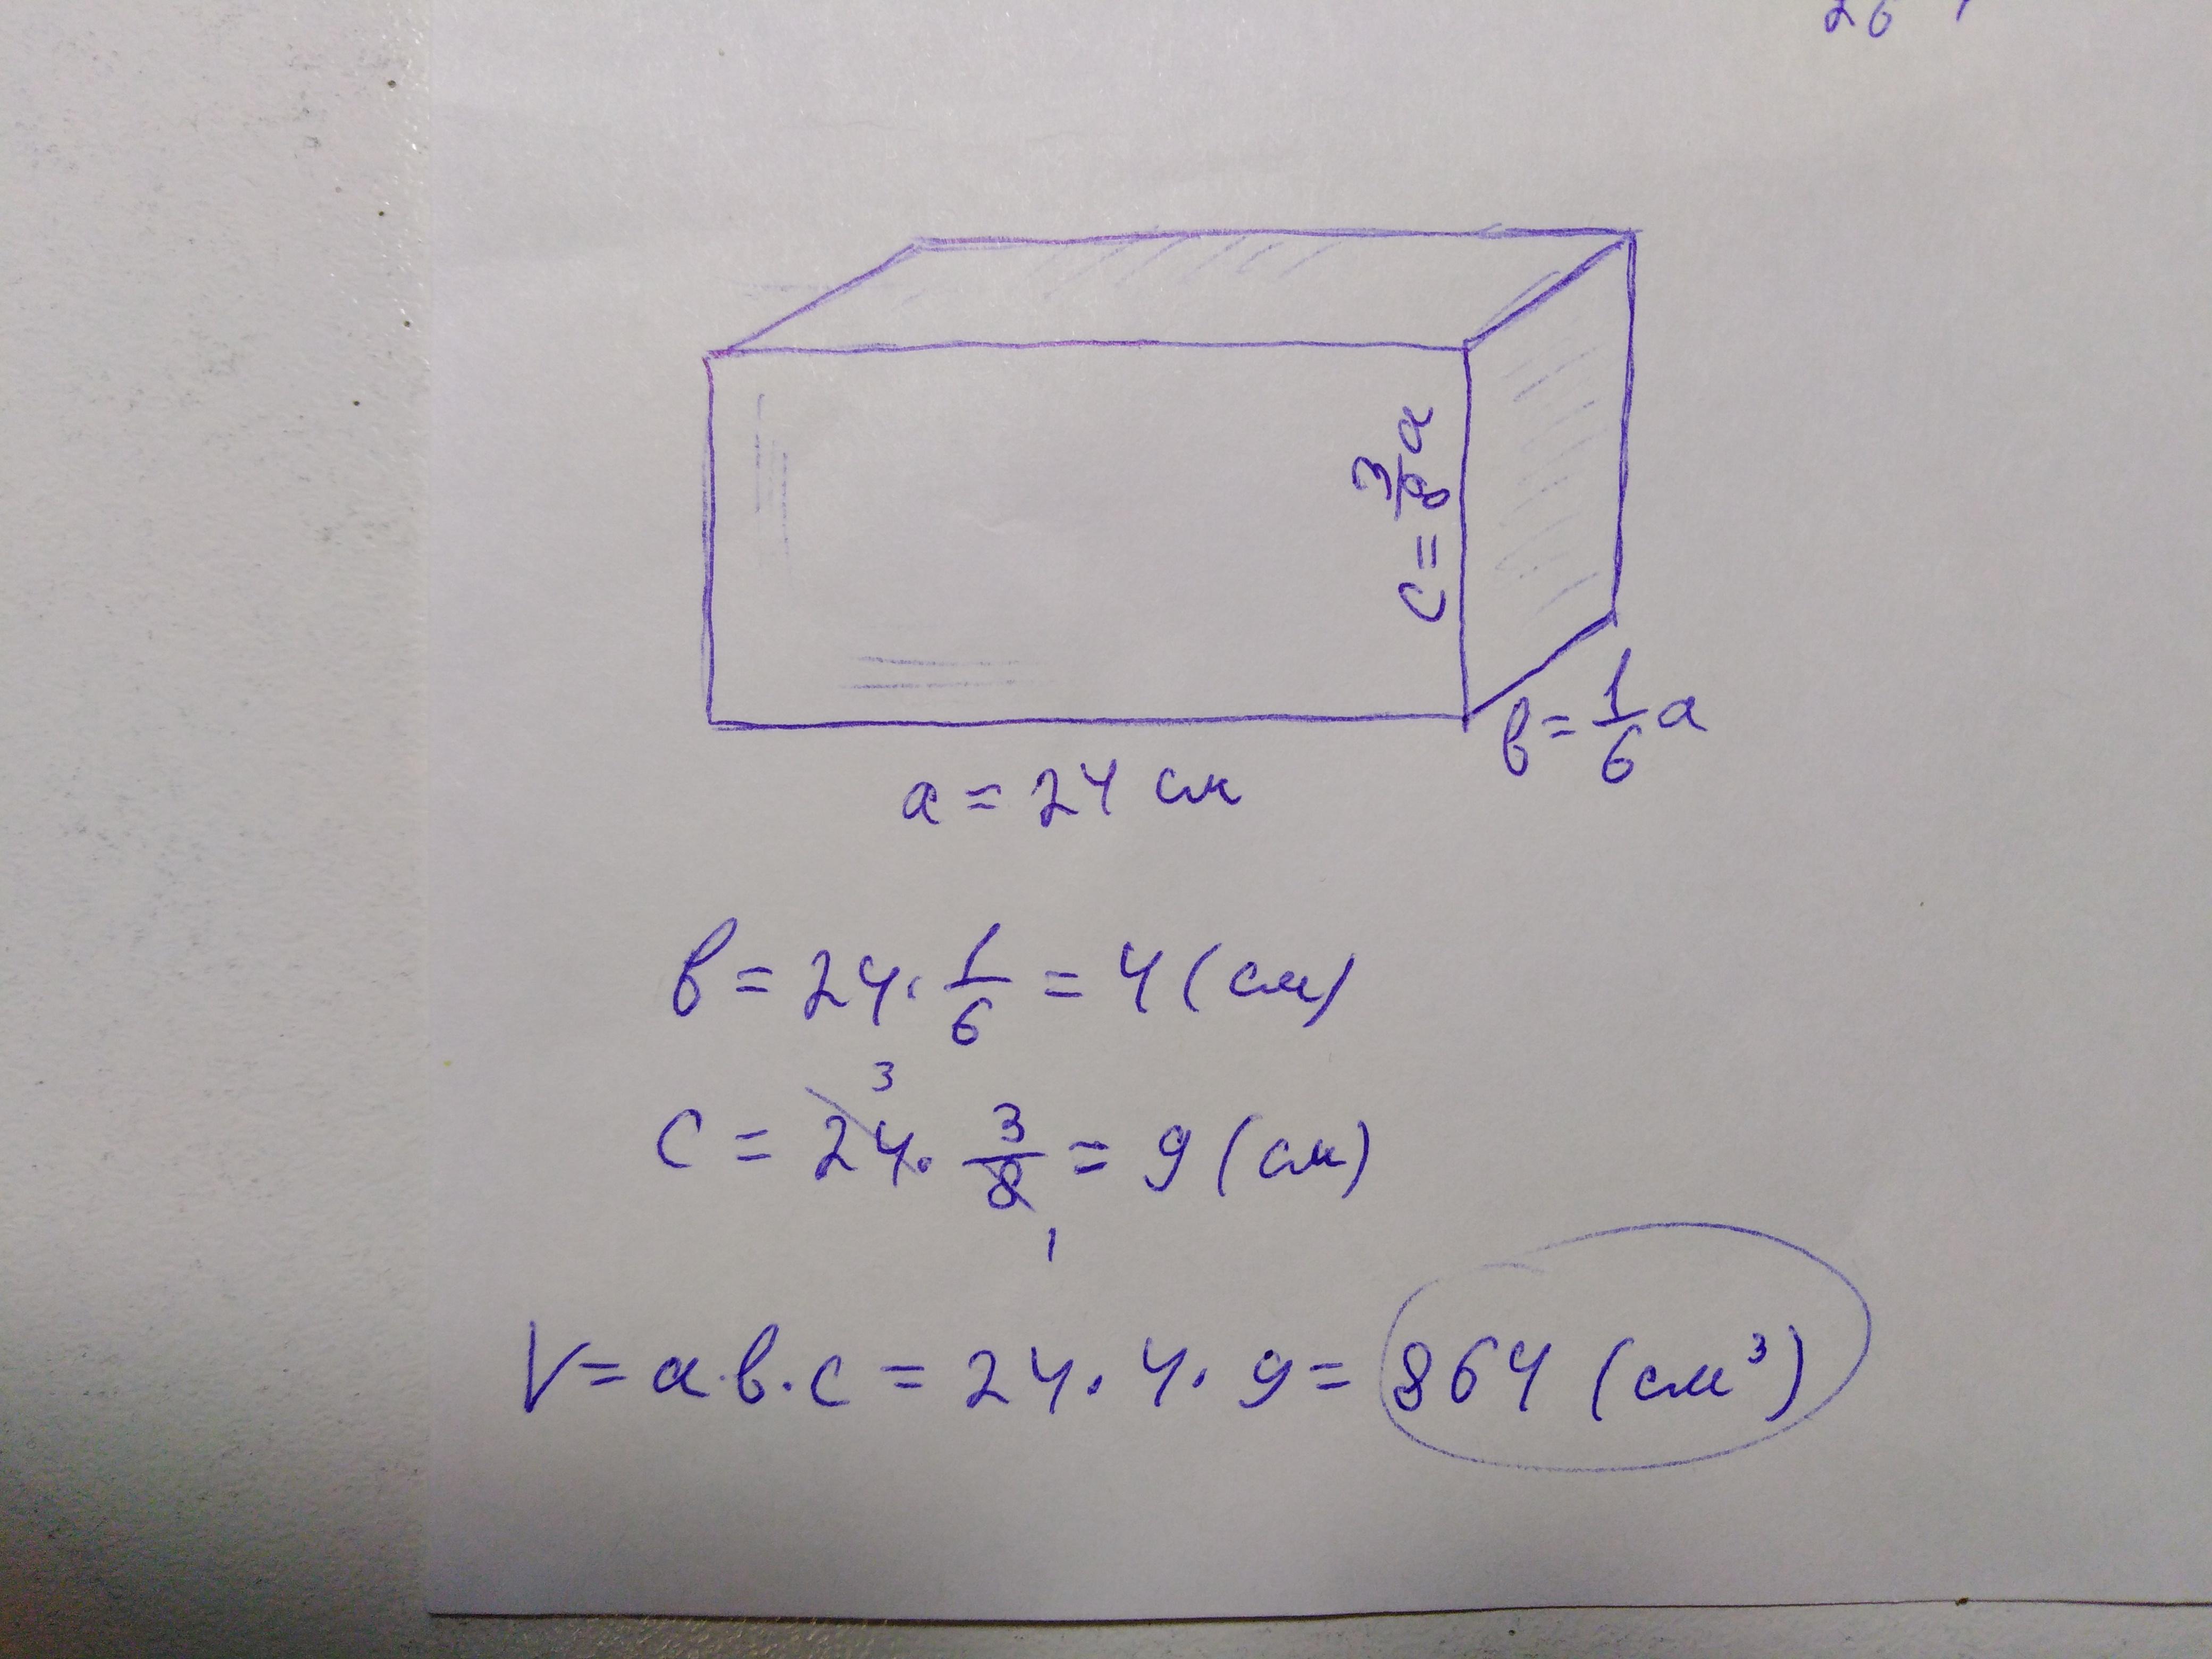 26
c = 3/8 a
в = 1/6 a
a = 24 см
в = 24 · 1/6 = 4 (см)
3
c = 24 · 3/8 = 9 (см)
1
V = a · в · c = 24 · 4 · 9 = 864 (см³)